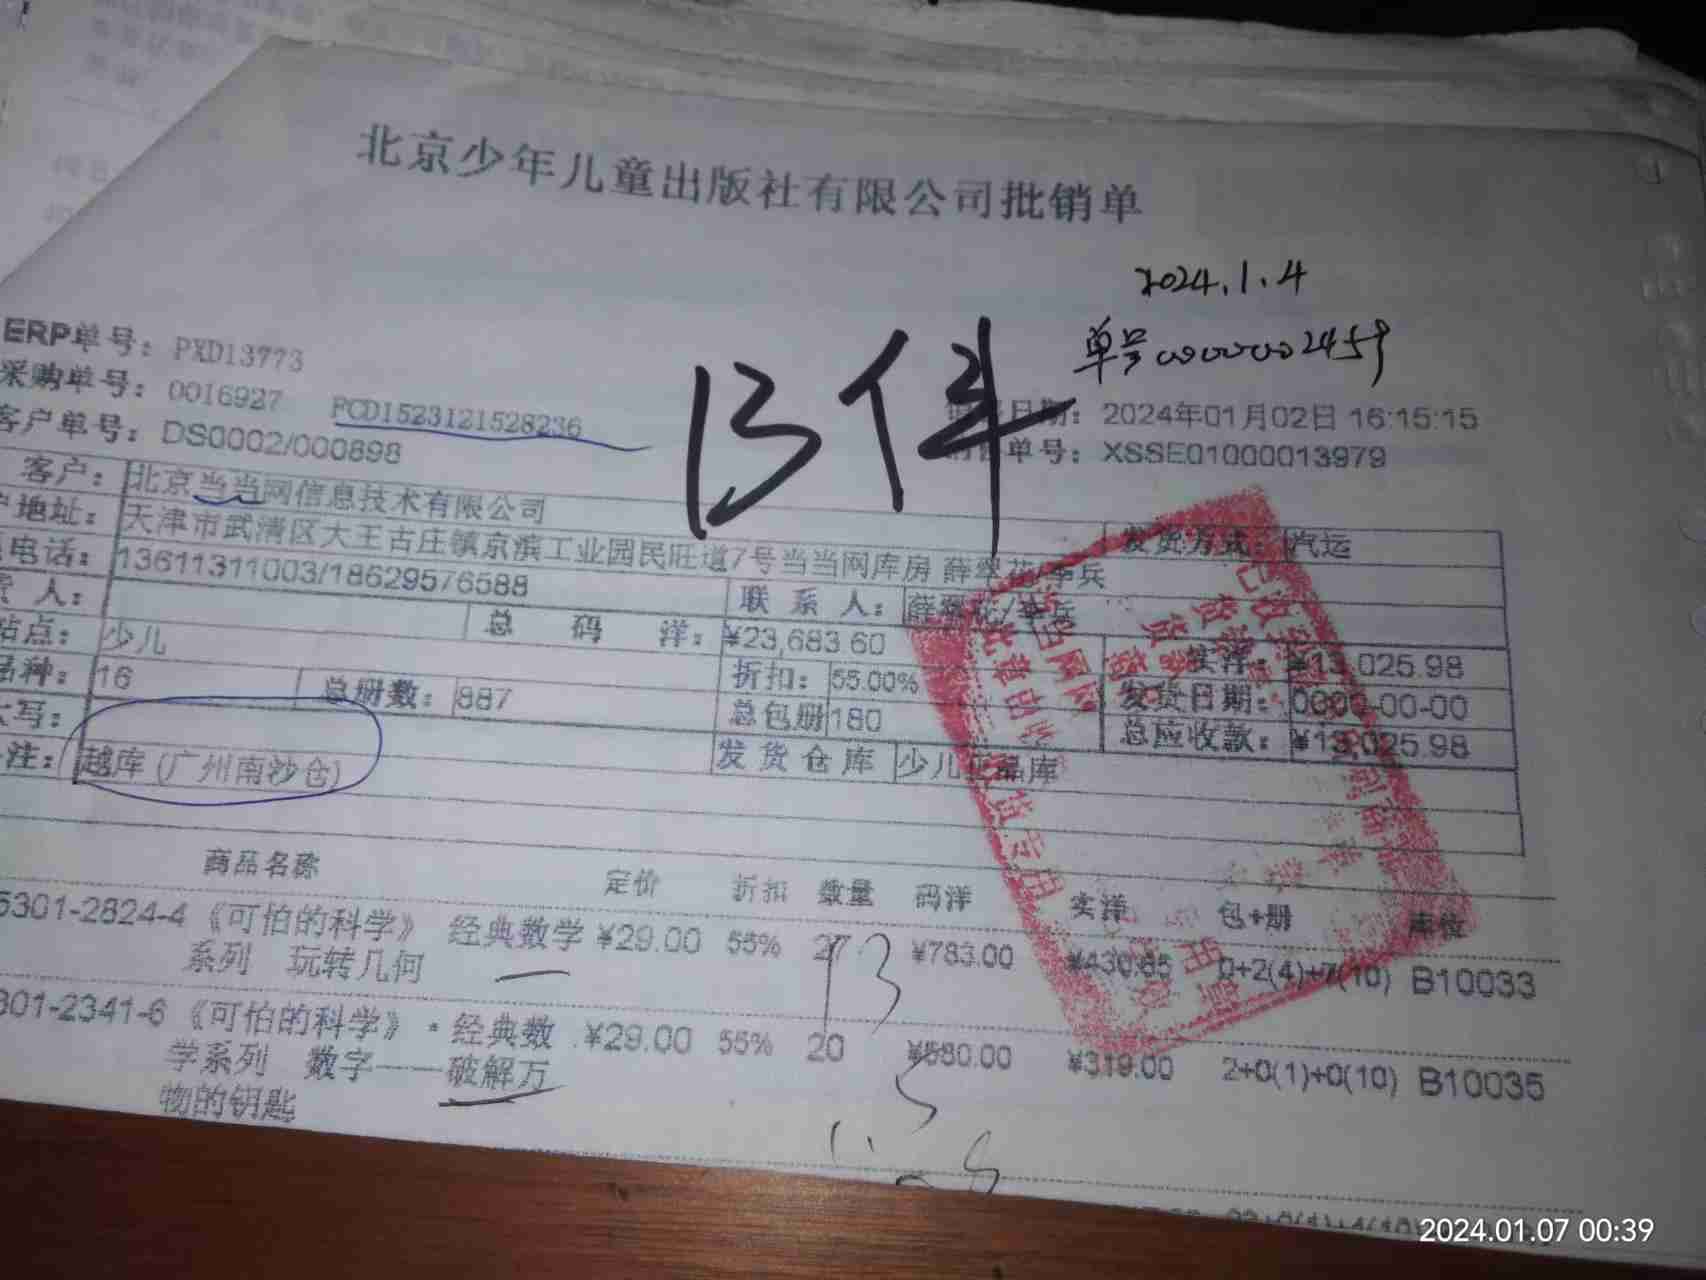 北京少年儿童出版社有限公司批销单
2024.1.4
单号00000002459
13件
ERP单号：PXD13773
采购单号：0016927 PCD1523121528236
日期：2024年01月02日 16:15:15
客户单号：DS0002/000898
单号：XSSE01000013979
客户：北京当当网信息技术有限公司
发货方式：汽运
地址：天津市武清区大王古庄镇京滨工业园民旺道7号当当网库房 薛翠花/李兵
电话：13611311003/18629576588 联系人：薛翠花/李兵
人：总码洋：¥23,683.60 实洋：¥13,025.98
站点：少儿 折扣：55.00% 发货日期：0000-00-00
品种：16 总册数：887 总包册180 总应收款：¥13,025.98
大写：
注：越库(广州南沙仓) 发货仓库 少儿正品库
商品名称 定价 折扣 数量 码洋 实洋 包+册 库位
5301-2824-4《可怕的科学》 经典数学 ¥29.00 55% 27 ¥783.00 ¥430.65 0+2(4)+7(10) B10033
系列 玩转几何
13
301-2341-6《可怕的科学》·经典数 ¥29.00 55% 20 ¥580.00 ¥319.00 2+0(1)+0(10) B10035
学系列 数字——破解万
物的钥匙
2024.01.07 00:39